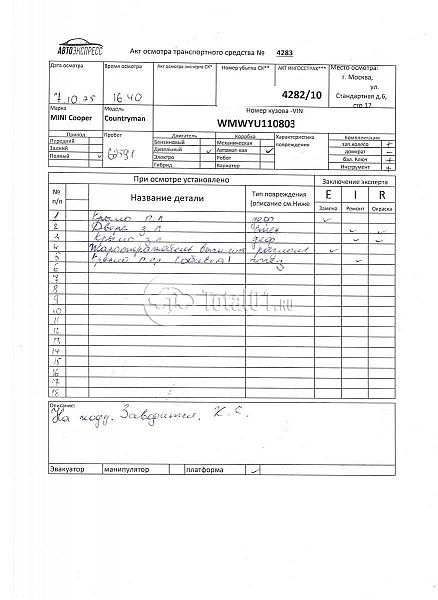 АВТОЭКСПРЕСС
Акт осмотра транспортного средства № 4283
Дата осмотра Время осмотра Акт осмотра эксперта СК* Номер убытка СК** АКТ ИНГОССТРАХ*** Место осмотра:
г. Москва,
ул.
7.10.25 16 40 4282/10 Стандартная д.6,
стр.17
Марка Модель Номер кузова -VIN
MINI Cooper Countryman WMWYU110803
Привод Пробег Двигатель Коробка Характеристика повреждения Комплектация
Передний Бензиновый Механическая зап.колесо +
Задний Дизельный ✓ Автомат-кая ✓ домкрат -
Полный ✓ Электро Робот бал. Ключ +
Гибрид Вариатор Инструмент +
При осмотре установлено Заключение эксперта
№ п/п Название детали Тип повреждения (описание см.Ниже E I R
Замена Ремонт Окраска
1 Крыло п.л. деф ✓
2 Дверь з.л. ✓ ✓
3 Крыло з.л. деф ✓ ✓
4 ✓
5 ✓
6
7
8
9
10
11
12
13
14
15
16
17
18
Total01.RU
Описание:
На ходу. Заводится. К.С.
Эвакуатор манипулятор платформа ✓